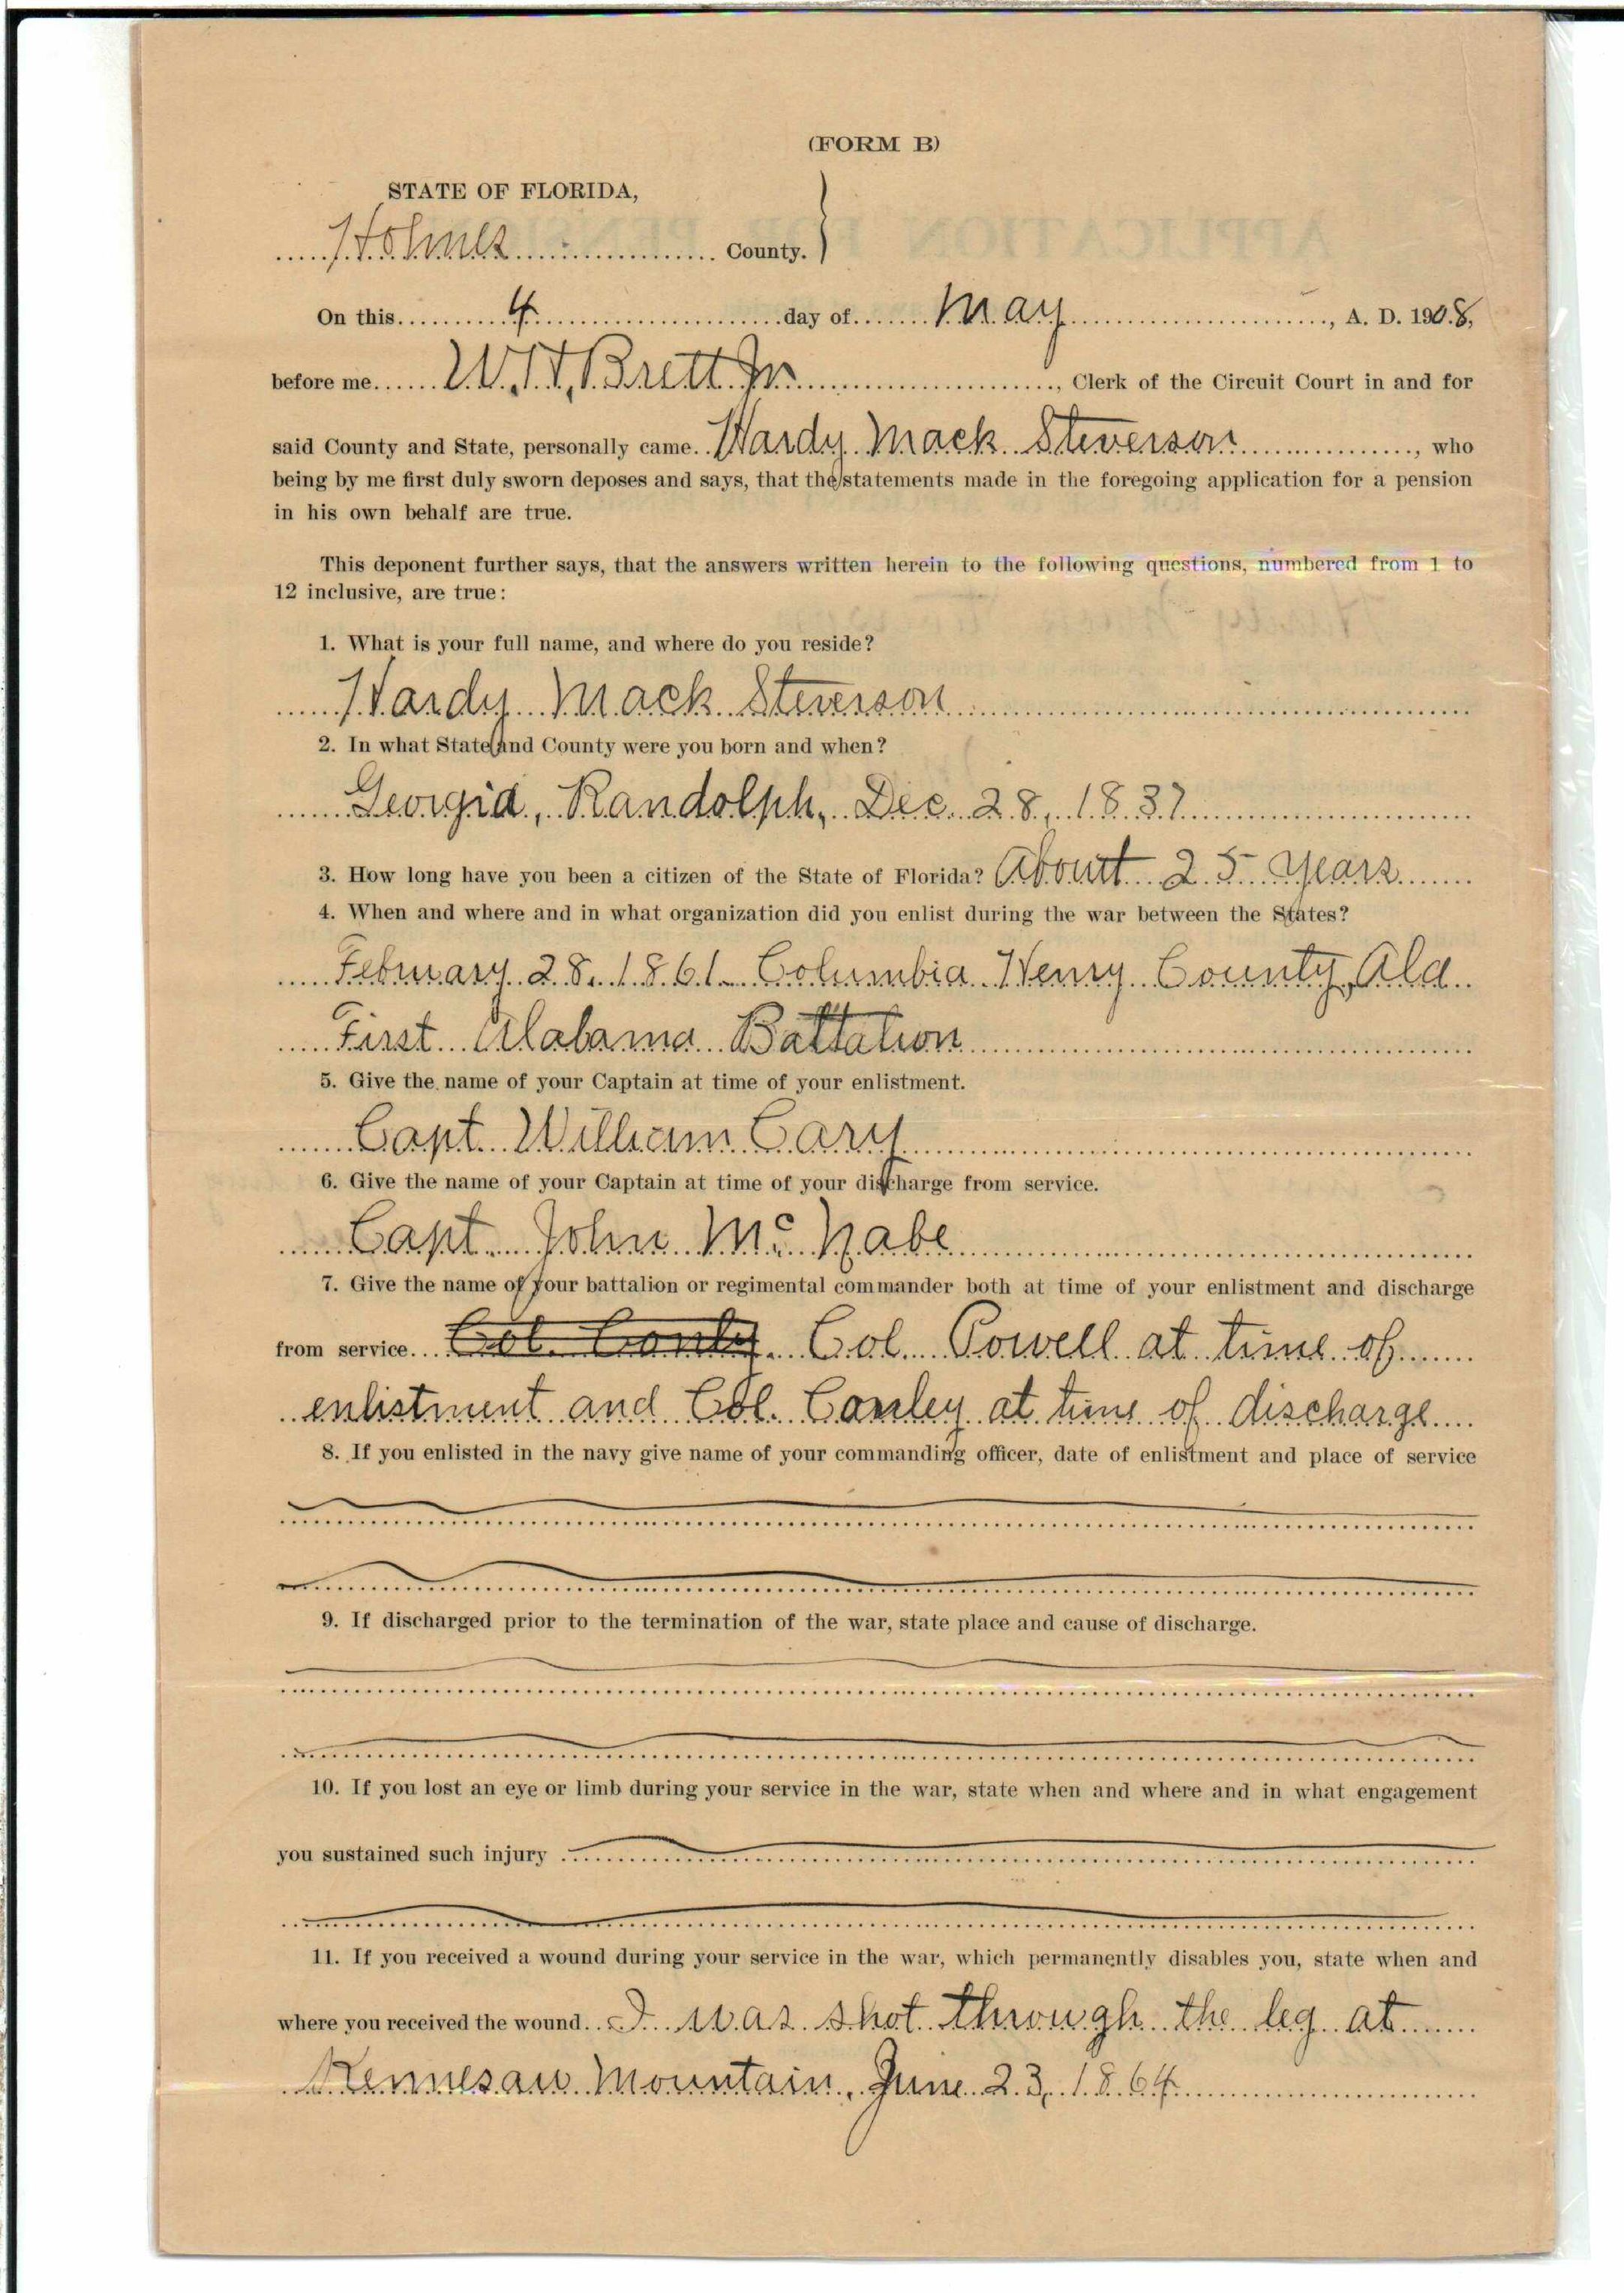 (FORM B)
STATE OF FLORIDA,
Holmes County.
On this 4 day of May, A. D. 1908,
before me W. H. Brett Jr., Clerk of the Circuit Court in and for
said County and State, personally came Hardy Mack Steverson, who
being by me first duly sworn deposes and says, that the statements made in the foregoing application for a pension
in his own behalf are true.
This deponent further says, that the answers written herein to the following questions, numbered from 1 to
12 inclusive, are true:
1. What is your full name, and where do you reside?
Hardy Mack Steverson
2. In what State and County were you born and when?
Georgia, Randolph, Dec. 28, 1837
3. How long have you been a citizen of the State of Florida? About 25 years
4. When and where and in what organization did you enlist during the war between the States?
February 28. 1861 Columbia Henry County, Ala
First Alabama Battalion
5. Give the name of your Captain at time of your enlistment.
Capt. William Cary
6. Give the name of your Captain at time of your discharge from service.
Capt. John Mc Nabe
7. Give the name of your battalion or regimental commander both at time of your enlistment and discharge
from service Col. Conly Col. Powell at time of
enlistment and Col. Conley at time of discharge
8. If you enlisted in the navy give name of your commanding officer, date of enlistment and place of service
9. If discharged prior to the termination of the war, state place and cause of discharge.
10. If you lost an eye or limb during your service in the war, state when and where and in what engagement
you sustained such injury
11. If you received a wound during your service in the war, which permanently disables you, state when and
where you received the wound. I was shot through the leg at
Kennesaw Mountain, June 23, 1864